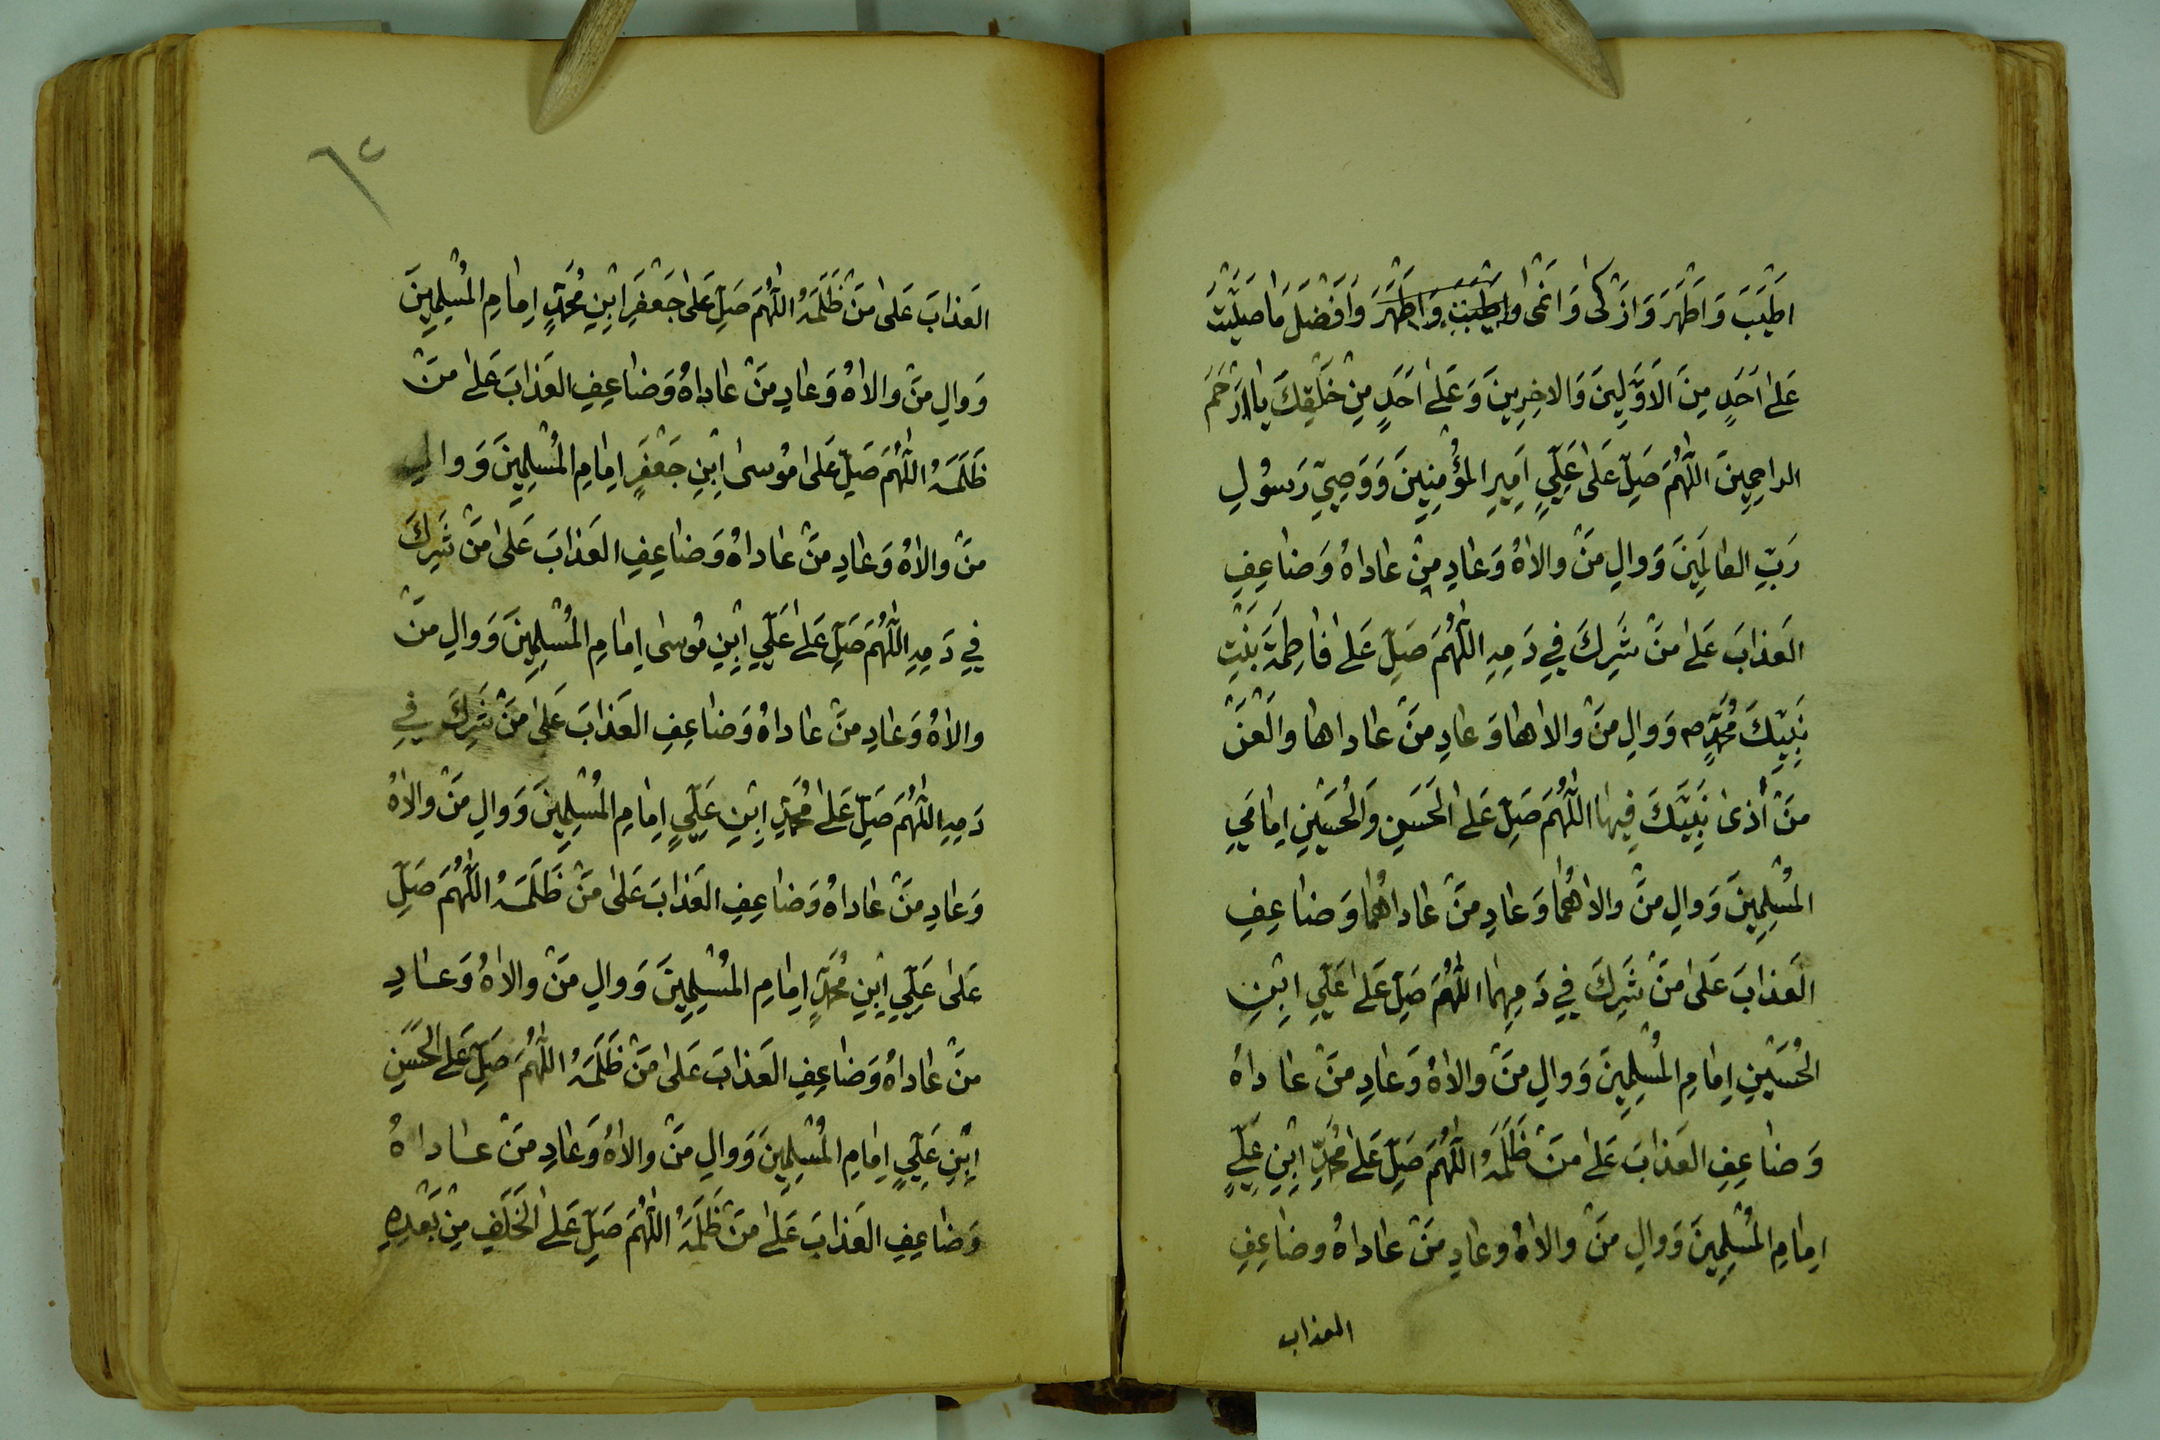 اَطْيَبَ وَاَطْهَرَ وَاَزْكىٰ وَاَنْمىٰ وَاَطْيَبَ وَاَطْهَرَ وَاَفْضَلَ مٰا صَلَّيْتَ
عَلىٰ اَحَدٍ مِنَ الاَوَّلِينَ وَالاخِرِينَ وَعَلىٰ اَحَدٍ مِنْ خَلْقِكَ يٰا اَرْحَمَ
الراحِمِينَ اللّٰهُمَّ صَلِّ عَلىٰ عَلِيٍّ اَمِيرِ المُؤْمِنِينَ وَوَصِيِّ رَسُولِ
رَبِّ العٰالَمِينَ وَوالِ مَنْ والاٰهُ وَعٰادِ مَنْ عٰاداهُ وَضٰاعِفِ
العَذابَ عَلىٰ مَنْ شَرِكَ فِي دَمِهِ اللّٰهُمَّ صَلِّ عَلىٰ فٰاطِمَةَ بِنْتِ
نَبِيِّكَ مُحَمَّدٍ ص وَوالِ مَنْ والاٰهٰا وَعٰادِ مَنْ عٰاداهٰا وَالْعَنْ
مَنْ أٰذىٰ نَبِيَّكَ فِيهٰا اللّٰهُمَّ صَلِّ عَلىٰ الحَسَنِ وَالْحُسَيْنِ اِمٰامَيِ
المُسْلِمِينَ وَوالِ مَنْ والاٰهُمٰا وَعٰادِ مَنْ عٰاداهُمٰا وَضٰاعِفِ
العَذابَ عَلىٰ مَنْ شَرِكَ فِي دَمِهِمٰا اللّٰهُمَّ صَلِّ عَلىٰ عَلِيِّ ابْنِ
الحُسَيْنِ اِمٰامِ المُسْلِمِينَ وَوالِ مَنْ والاٰهُ وَعٰادِ مَنْ عٰاداهُ
وَضٰاعِفِ العَذابَ عَلىٰ مَنْ ظَلَمَهُ اللّٰهُمَّ صَلِّ عَلىٰ مُحَمَّدِ ابْنِ عَلِيٍّ
اِمٰامِ المُسْلِمِينَ وَوالِ مَنْ والاٰهُ وعٰادِ مَنْ عٰاداهُ وضٰاعِفِ
العذاب
٦٢
العَذابَ عَلىٰ مَنْ ظَلَمَهُ اللّٰهُمَّ صَلِّ عَلىٰ جَعْفَرِ ابْنِ مُحَمَّدٍ اِمٰامِ المُسْلِمِينَ
وَوالِ مَنْ والاٰهُ وَعٰادِ مَنْ عٰاداهُ وَضٰاعِفِ العَذابَ عَلىٰ مَنْ
ظَلَمَهُ اللّٰهُمَّ صَلِّ عَلىٰ مُوسىٰ ابْنِ جَعْفَرٍ اِمٰامِ المُسْلِمِينَ وَوالِ
مَنْ والاٰهُ وَعٰادِ مَنْ عٰاداهُ وَضٰاعِفِ العَذابَ عَلىٰ مَنْ شَرِكَ
فِي دَمِهِ اللّٰهُمَّ صَلِّ عَلىٰ عَلِيِّ ابْنِ مُوسىٰ اِمٰامِ المُسْلِمِينَ وَوالِ مَنْ
والاٰهُ وَعٰادِ مَنْ عٰاداهُ وَضٰاعِفِ العَذابَ عَلىٰ مَنْ شَرِكَ فِي
دَمِهِ اللّٰهُمَّ صَلِّ عَلىٰ مُحَمَّدِ ابْنِ عَلِيٍّ اِمٰامِ المُسْلِمِينَ وَوالِ مَنْ والاٰهُ
وَعٰادِ مَنْ عٰاداهُ وَضٰاعِفِ العَذابَ عَلىٰ مَنْ ظَلَمَهُ اللّٰهُمَّ صَلِّ
عَلىٰ عَلِيِّ ابْنِ مُحَمَّدٍ اِمٰامِ المُسْلِمِينَ وَوالِ مَنْ والاٰهُ وَعٰادِ
مَنْ عٰاداهُ وَضٰاعِفِ العَذابَ عَلىٰ مَنْ ظَلَمَهُ اللّٰهُمَّ صَلِّ عَلىٰ الحَسَنِ
ابْنِ عَلِيٍّ اِمٰامِ المُسْلِمِينَ وَوالِ مَنْ والاٰهُ وَعٰادِ مَنْ عٰاداهُ
وَضٰاعِفِ العَذابَ عَلىٰ مَنْ ظَلَمَهُ اللّٰهُمَّ صَلِّ عَلىٰ الخَلَفِ مِنْ بَعْدِهِ